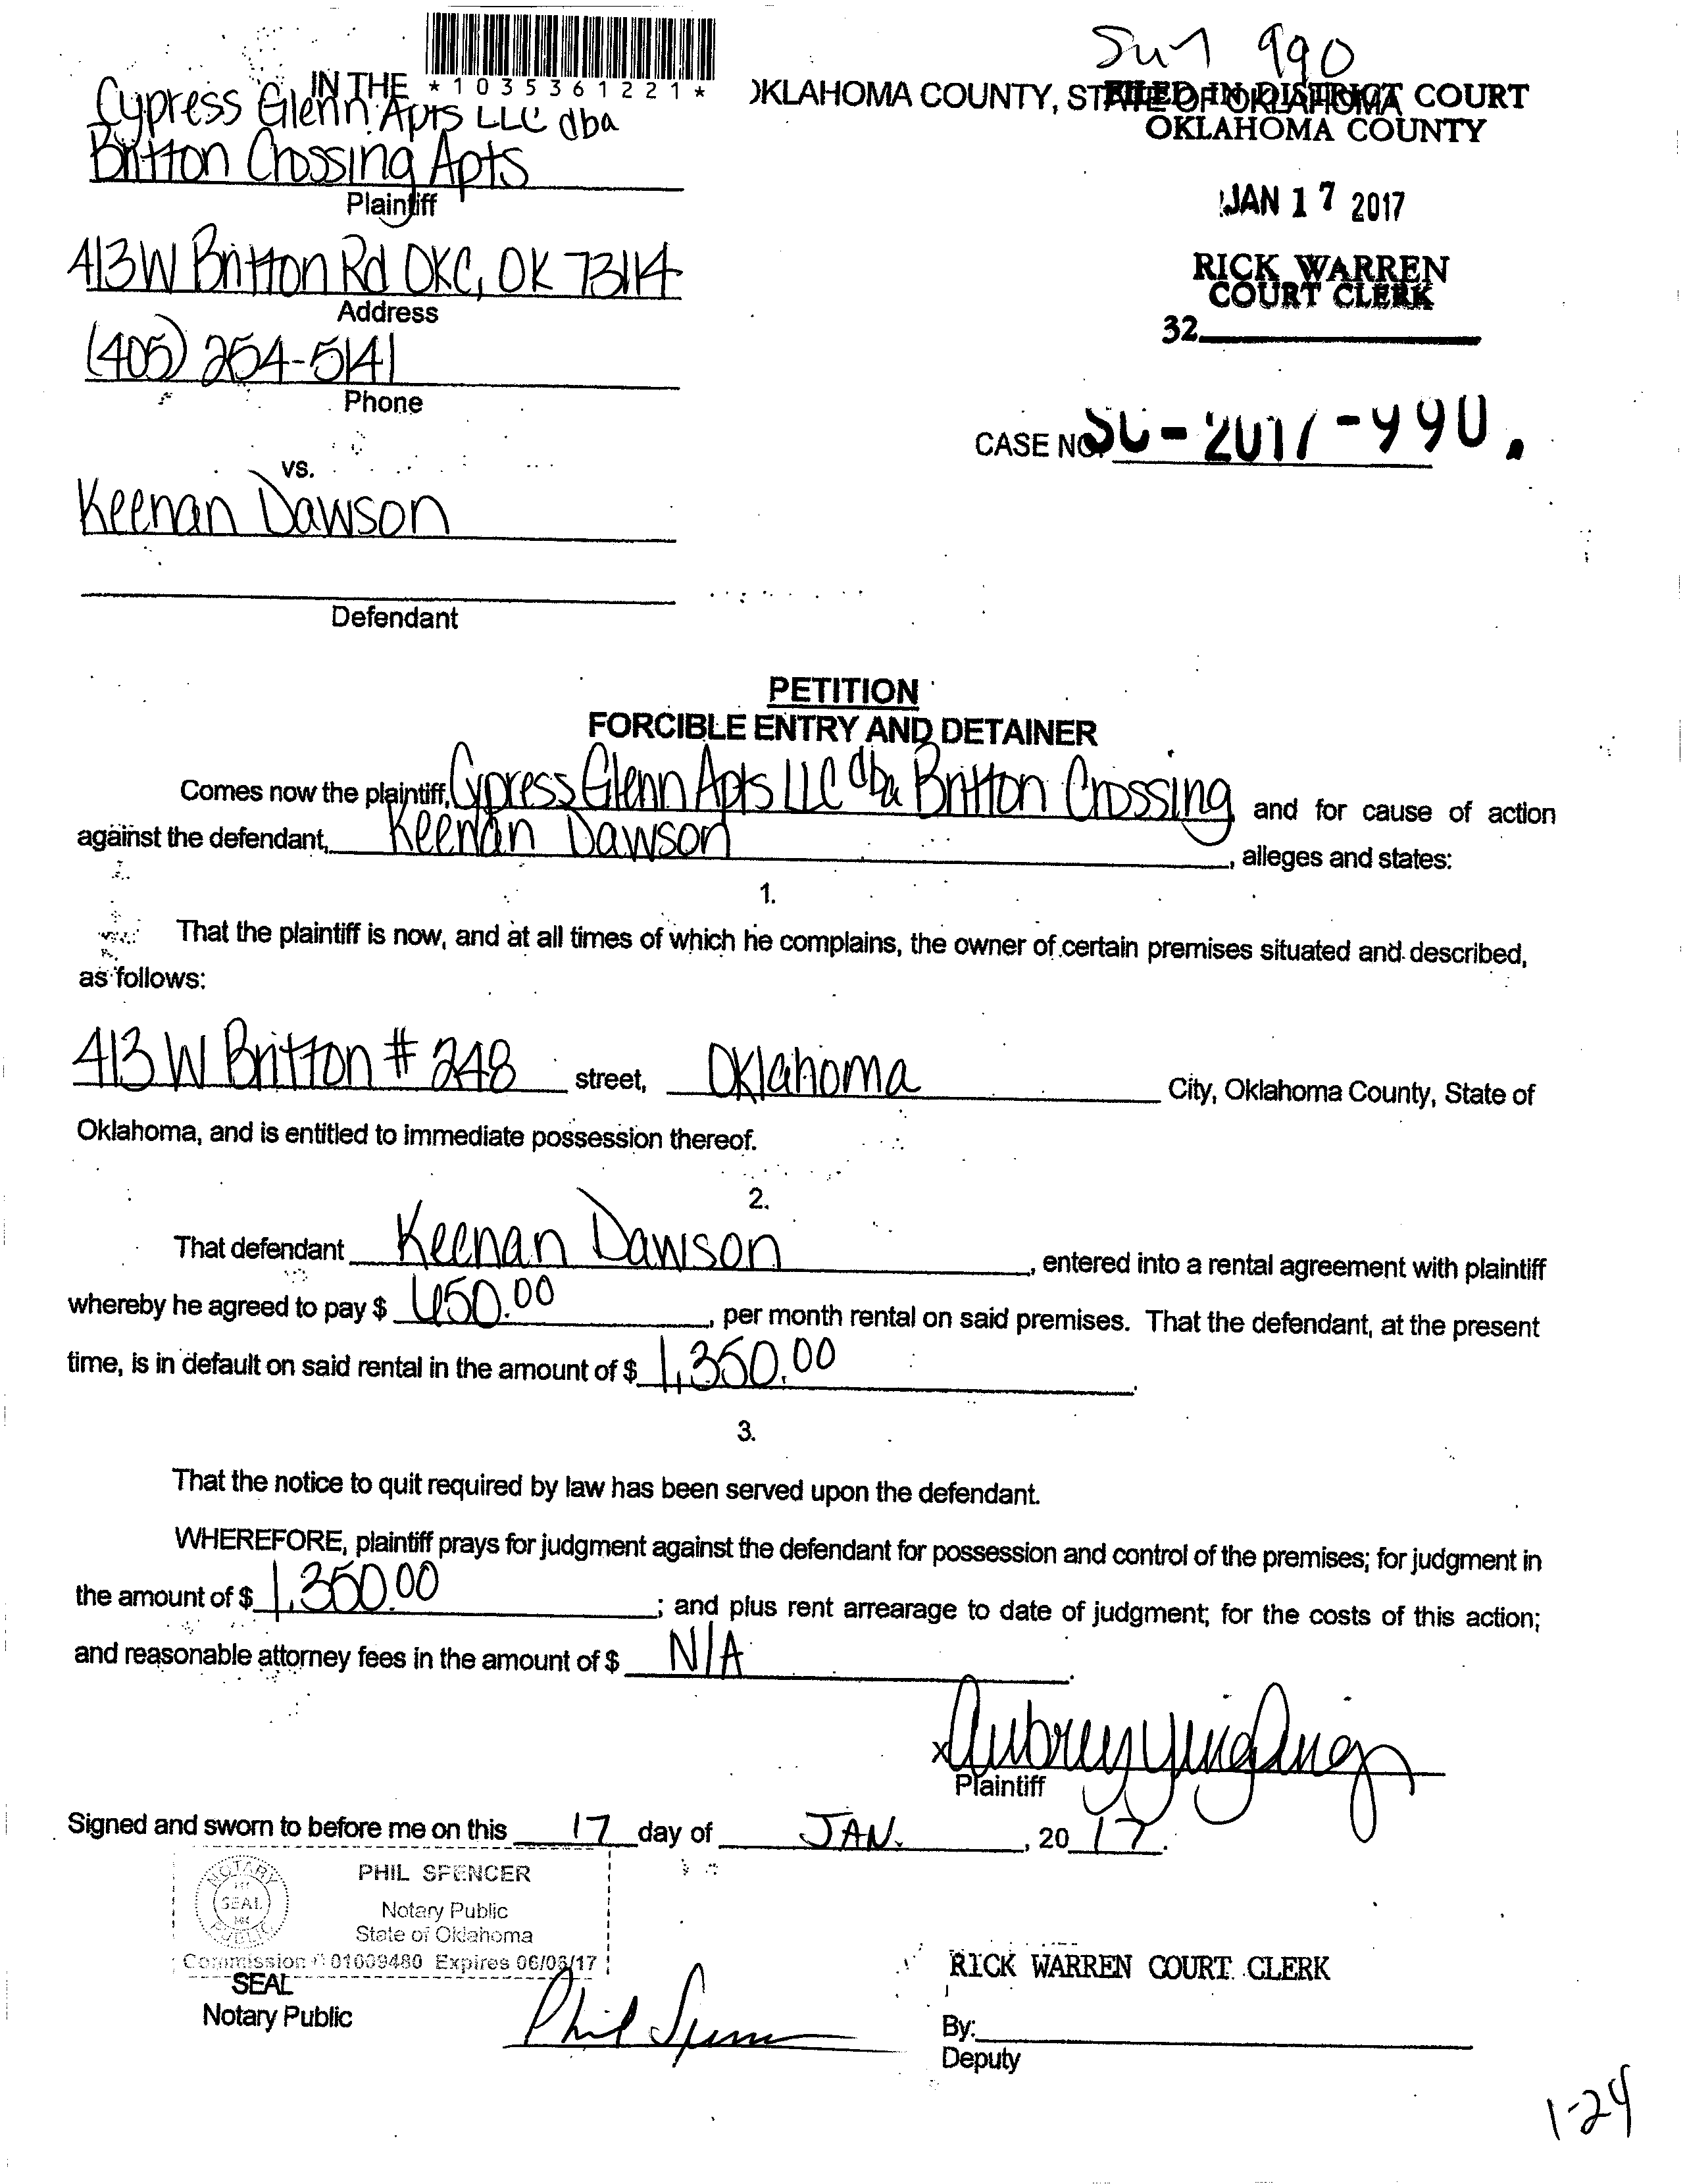 Sm 990
*1035361221*
IN THE OKLAHOMA COUNTY, STATE OF OKLAHOMA
FILED IN DISTRICT COURT
OKLAHOMA COUNTY
Cypress Glenn Apts LLC dba
Britton Crossing Apts
Plaintiff
JAN 17 2017
413 W Britton Rd OKC, OK 73114
Address
RICK WARREN
COURT CLERK
32
(405) 254-5141
Phone
CASE NO. SC-2017-990.
vs.
Keenan Dawson
Defendant
PETITION
FORCIBLE ENTRY AND DETAINER
Comes now the plaintiff, Cypress Glenn Apts LLC dba Britton Crossing and for cause of action
against the defendant, Keenan Dawson, alleges and states:
1.
That the plaintiff is now, and at all times of which he complains, the owner of certain premises situated and described,
as follows:
413 W Britton # 248 street, Oklahoma City, Oklahoma County, State of
Oklahoma, and is entitled to immediate possession thereof.
2.
That defendant Keenan Dawson, entered into a rental agreement with plaintiff
whereby he agreed to pay $ 650.00, per month rental on said premises. That the defendant, at the present
time, is in default on said rental in the amount of $ 1,350.00.
3.
That the notice to quit required by law has been served upon the defendant.
WHEREFORE, plaintiff prays for judgment against the defendant for possession and control of the premises; for judgment in
the amount of $ 1,350.00; and plus rent arrearage to date of judgment; for the costs of this action;
and reasonable attorney fees in the amount of $ N/A.
x Aubrey Yingling
Plaintiff
Signed and sworn to before me on this 17 day of JAN., 20 17.
NOTARY PUBLIC
SEAL
PHIL SPENCER
Notary Public
State of Oklahoma
Commission # 01009480 Expires 06/08/17
SEAL
Notary Public
Phil Spencer
RICK WARREN COURT CLERK
By:
Deputy
1-24